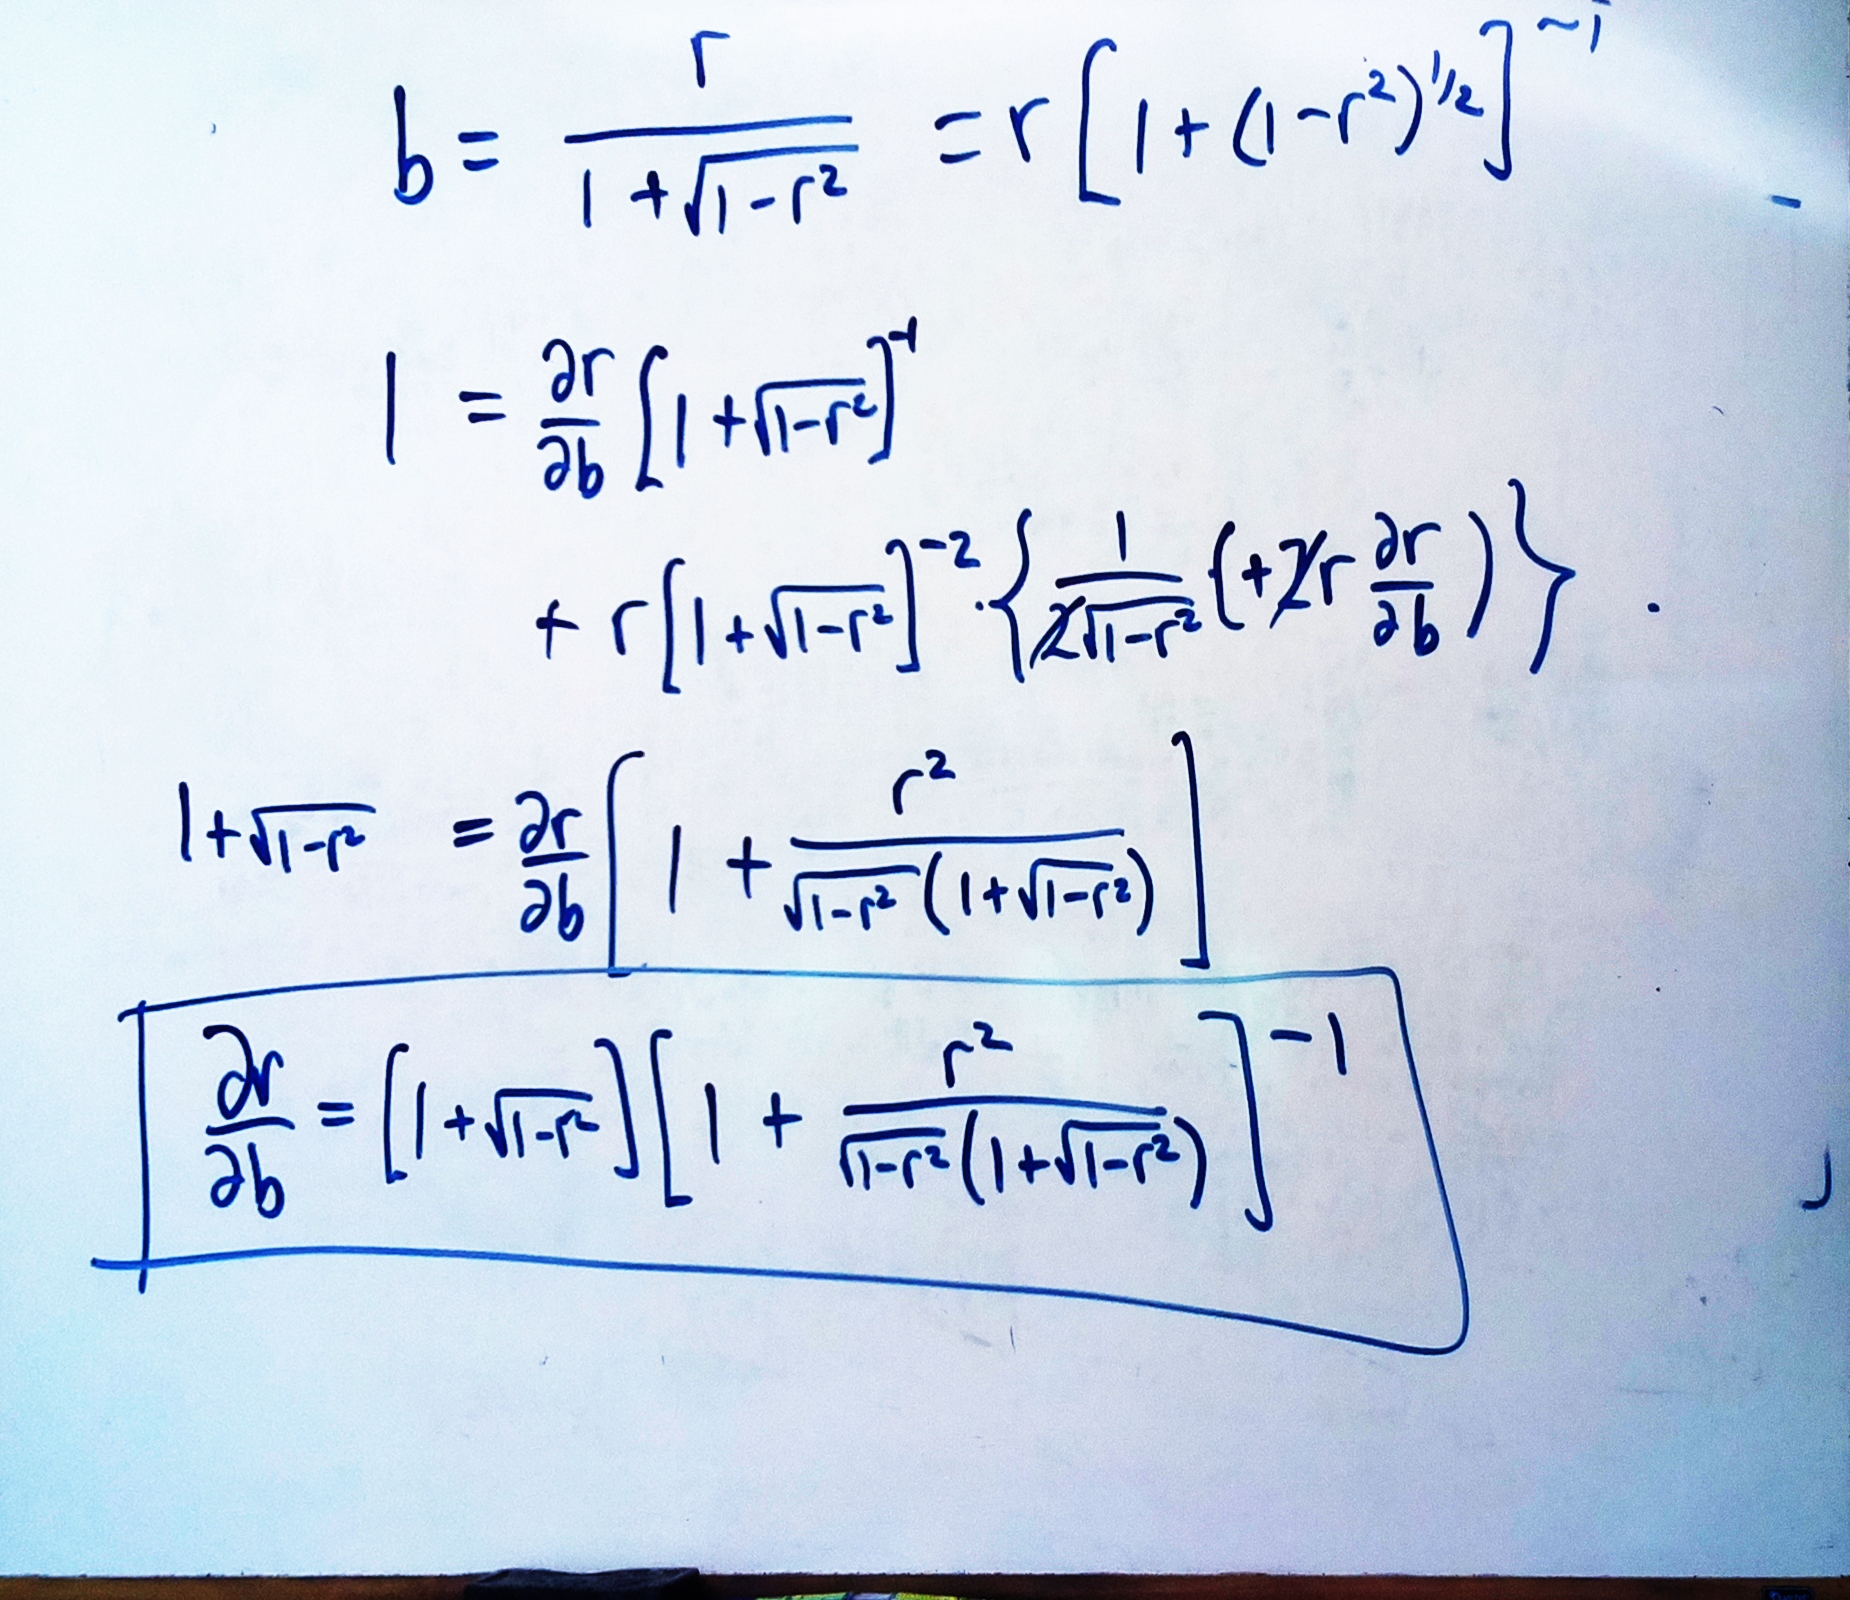 b = r / (1 + √(1-r²)) = r [1 + (1-r²)^(1/2)]^(-1)
1 = ∂r/∂b [1 + √(1-r²)]^(-1)
+ r [1 + √(1-r²)]^(-2) · {1 / (2√(1-r²)) (+2r ∂r/∂b)}
1 + √(1-r²) = ∂r/∂b [1 + r² / (√(1-r²) (1 + √(1-r²)))]
∂r/∂b = [1 + √(1-r²)] [1 + r² / (√(1-r²) (1 + √(1-r²)))]^(-1)